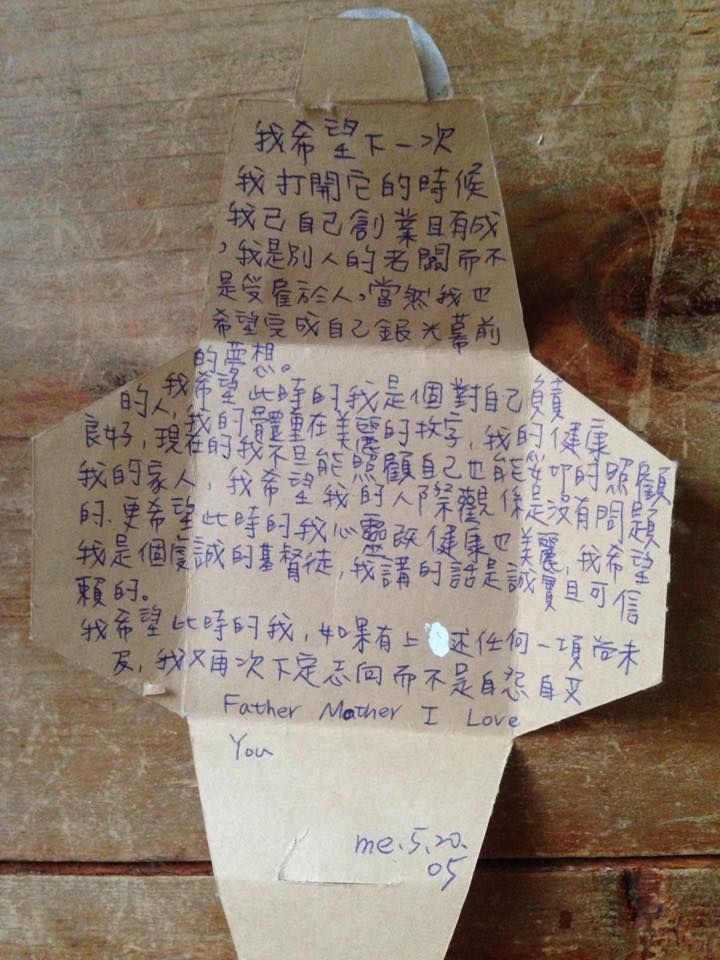 我希望下一次
我打開它的時候
我已自己創業且有成
，我是別人的老闆而不
是受雇於人，當然我也
希望完成自己銀光幕前
的夢想。
我希望此時的我是個對自己負責
的人，我的體重在美麗的数字，我的健康
良好，現在的我不旦能照顧自己也能妥切的照顧
我的家人，我希望我的人際觀係是沒有問題
的.更希望此時的我心靈既健康也美麗，我希望
我是個虔誠的基督徒，我講的話是誠實且可信
賴的。
我希望此時的我，如果有上述任何一項尚未
及，我又再次下定志向而不是自怨自艾
Father Mother I Love
You
me.5.20.
05